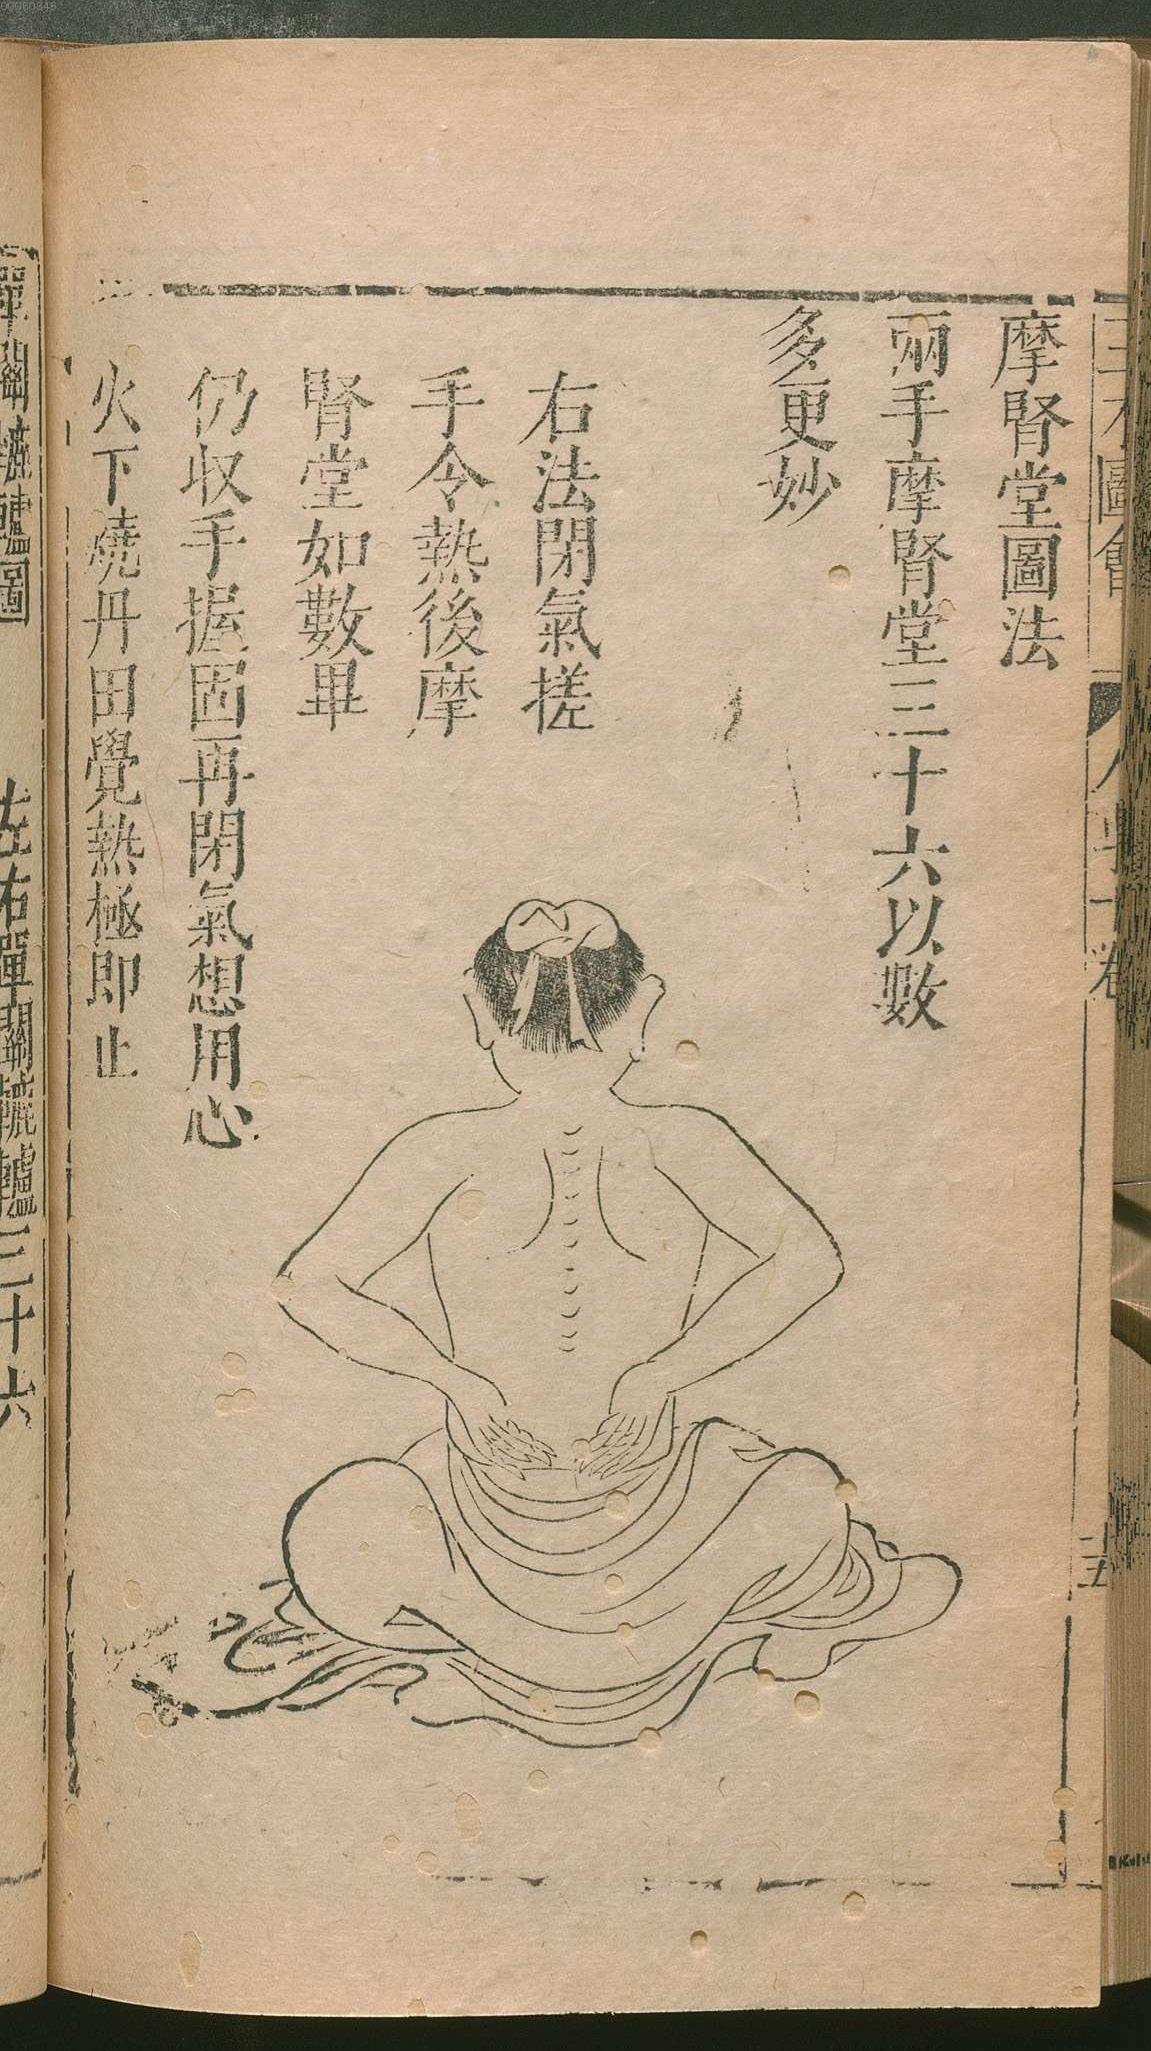 三才圖會
人事十卷
十五
摩腎堂圖法
兩手摩腎堂三十六以數
多更妙
右法閉氣搓
手令熱後摩
腎堂如數畢
仍収手握固再閉氣想用心
火下燒丹田覺熱極即止
單關轆轤圖
左右單關轆轤三十六
00060346